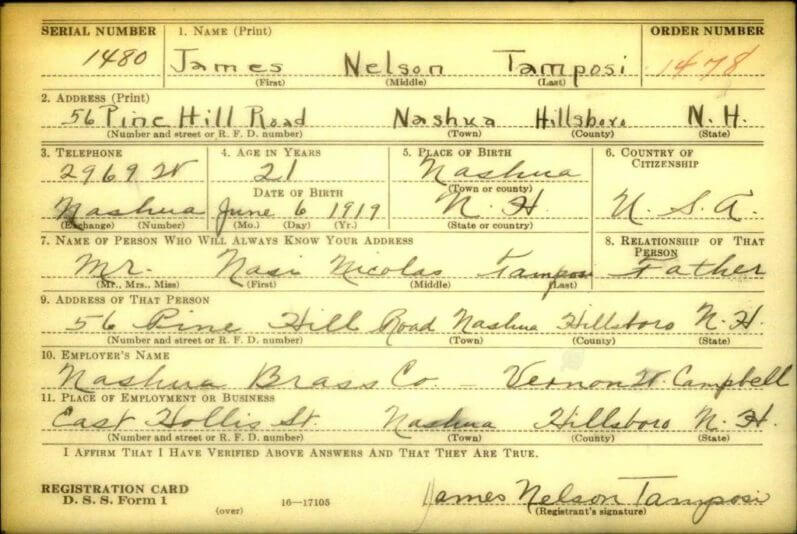 SERIAL NUMBER 1. NAME (Print) ORDER NUMBER
1480 James Nelson Tamposi 1478
(First) (Middle) (Last)
2. ADDRESS (Print)
56 Pine Hill Road Nashua Hillsboro N. H.
(Number and street or R. F. D. number) (Town) (County) (State)
3. TELEPHONE 4. AGE IN YEARS 5. PLACE OF BIRTH 6. COUNTRY OF CITIZENSHIP
2969 W 21 Nashua
DATE OF BIRTH (Town or county)
Nashua June 6 1919 N. H. U. S. A.
(Exchange) (Number) (Mo.) (Day) (Yr.) (State or country)
7. NAME OF PERSON WHO WILL ALWAYS KNOW YOUR ADDRESS 8. RELATIONSHIP OF THAT PERSON
Mr. Nasi Nicolas Tamposi Father
(Mr., Mrs., Miss) (First) (Middle) (Last)
9. ADDRESS OF THAT PERSON
56 Pine Hill Road Nashua Hillsboro N. H.
(Number and street or R. F. D. number) (Town) (County) (State)
10. EMPLOYER'S NAME
Nashua Brass Co. – Vernon W. Campbell
11. PLACE OF EMPLOYMENT OR BUSINESS
East Hollis St. Nashua Hillsboro N. H.
(Number and street or R. F. D. number) (Town) (County) (State)
I AFFIRM THAT I HAVE VERIFIED ABOVE ANSWERS AND THAT THEY ARE TRUE.
REGISTRATION CARD
D. S. S. Form 1 16—17105 James Nelson Tamposi
(over) (Registrant's signature)